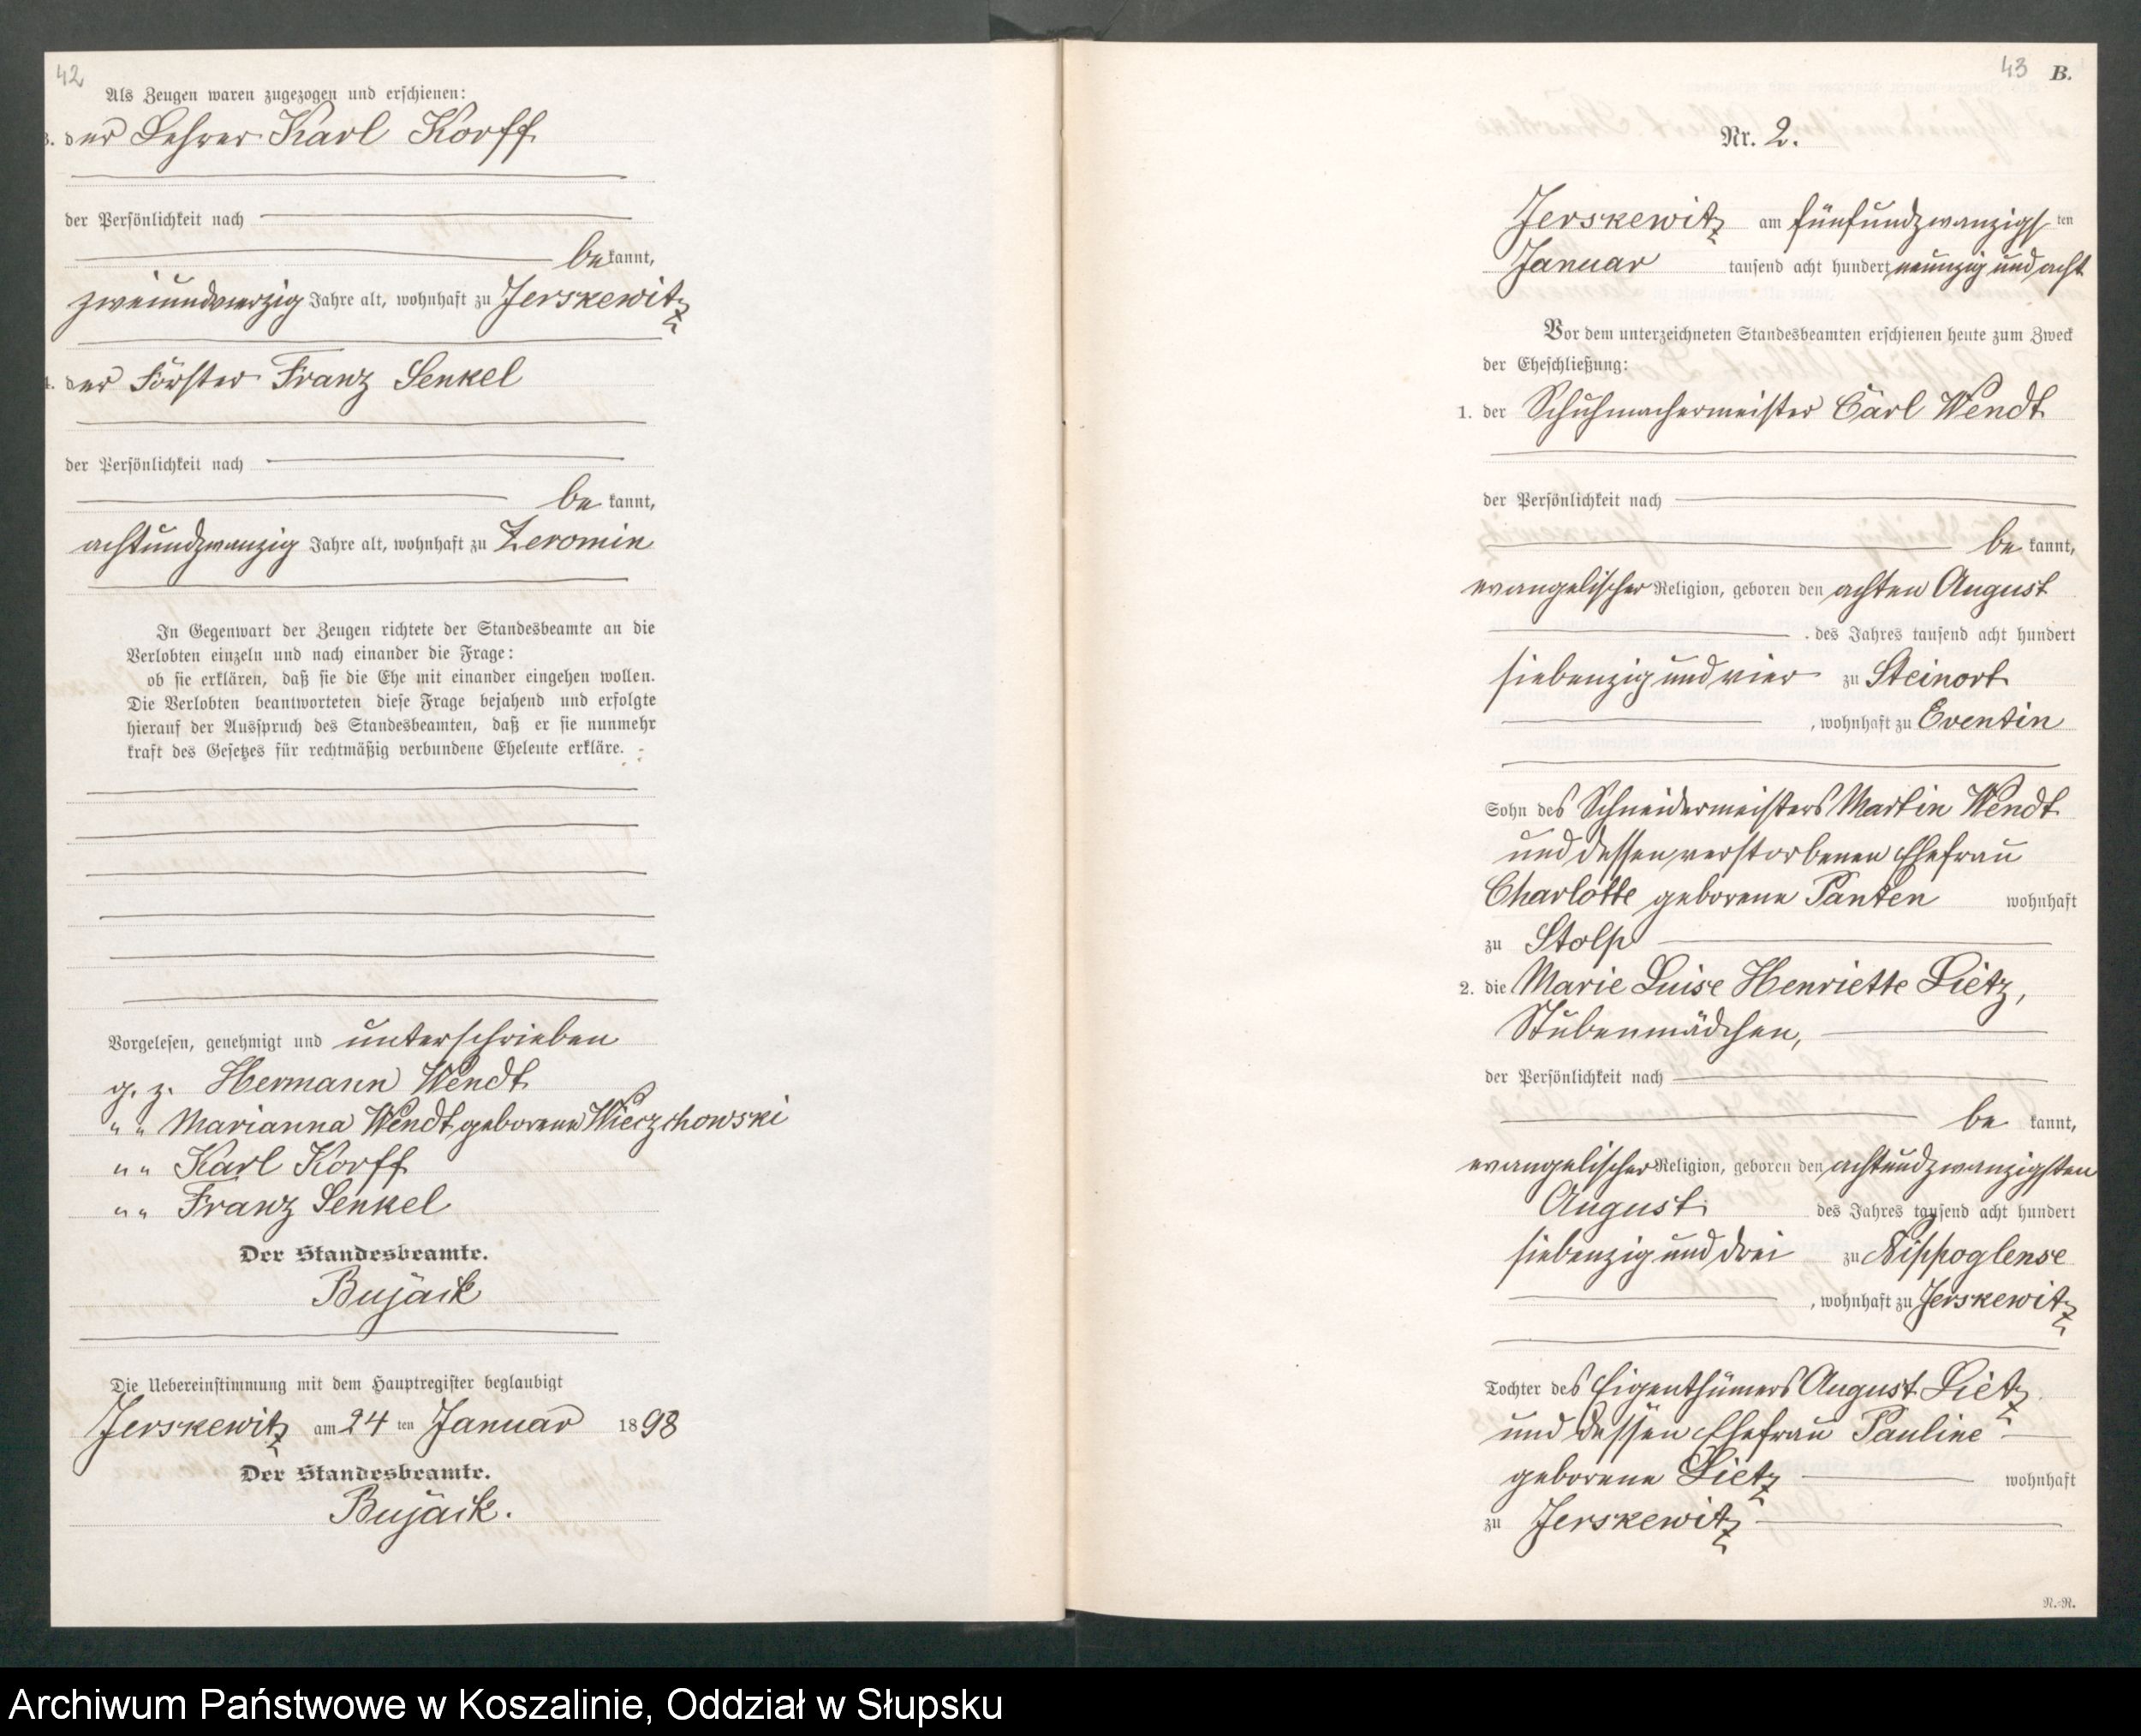 42
Als Zeugen waren zugezogen und erschienen:
3. der Lehrer Karl Korff
der Persönlichkeit nach
bekannt,
zweiundvierzig Jahre alt, wohnhaft zu Jerskewitz
4. der Förster Franz Senkel
der Persönlichkeit nach
be kannt,
achtundzwanzig Jahre alt, wohnhaft zu Zeromin
In Gegenwart der Zeugen richtete der Standesbeamte an die
Verlobten einzeln und nach einander die Frage:
ob sie erklären, daß sie die Ehe mit einander eingehen wollen.
Die Verlobten beantworteten diese Frage bejahend und erfolgte
hierauf der Ausspruch des Standesbeamten, daß er sie nunmehr
kraft des Gesetzes für rechtmäßig verbundene Eheleute erkläre.
Vorgelesen, genehmigt und unterschrieben
g. z. Hermann Wendt
" " Marianna Wendt geborene Wierzchowski
" " Karl Korff
" " Franz Senkel
Der Standesbeamte.
Bujack
Die Uebereinstimmung mit dem Hauptregister beglaubigt
Jerskewitz am 24 ten Januar 1898
Der Standesbeamte.
Bujack.
43 B.
Nr. 2.
Jerskewitz am fünfundzwanzigs ten
Januar tausend acht hundert neunzig und acht
Vor dem unterzeichneten Standesbeamten erschienen heute zum Zweck
der Eheschließung:
1. der Schuhmachermeister Carl Wendt
der Persönlichkeit nach
be kannt,
evangelischer Religion, geboren den achten August
des Jahres tausend acht hundert
siebenzig und vier zu Steinort
, wohnhaft zu Eventin
Sohn des Schneidermeisters Martin Wendt
und dessen verstorbenen Ehefrau
Charlotte geborene Panten wohnhaft
zu Stolp
2. die Marie Luise Henriette Lietz,
Stubenmädchen,
der Persönlichkeit nach
be kannt,
evangelischer Religion, geboren den achtundzwanzigsten
August des Jahres tausend acht hundert
siebenzig und drei zu Nippoglense
, wohnhaft zu Jerskewitz
Tochter des Eigenthümers August Lietz
und dessen Ehefrau Pauline
geborene Lietz wohnhaft
zu Jerskewitz
N.-N.
Archiwum Państwowe w Koszalinie, Oddział w Słupsku